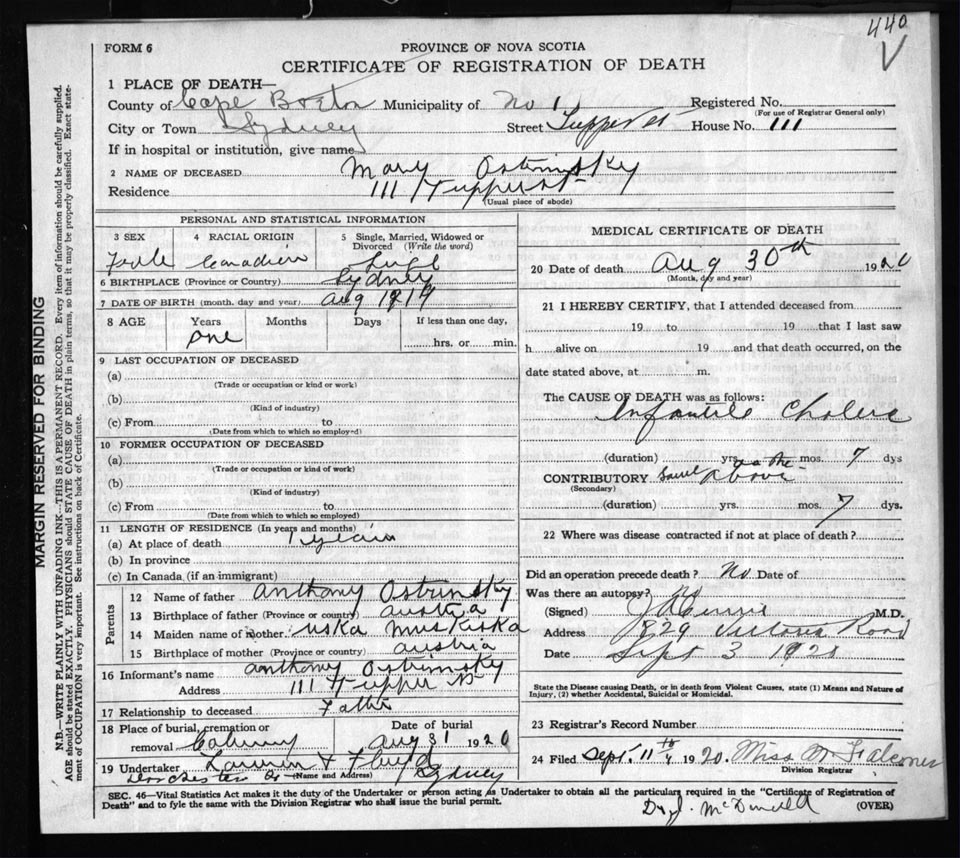 440
FORM 6
PROVINCE OF NOVA SCOTIA
CERTIFICATE OF REGISTRATION OF DEATH
1 PLACE OF DEATH—
County of Cape Breton Municipality of No 1 Registered No.
(For use of Registrar General only)
City or Town Sydney Street Tupper St House No. 111
If in hospital or institution, give name
2 NAME OF DECEASED Mary Ostrinsky
Residence 111 Tupper St
(Usual place of abode)
PERSONAL AND STATISTICAL INFORMATION
3 SEX 4 RACIAL ORIGIN 5 Single, Married, Widowed or Divorced (Write the word)
Canadian
6 BIRTHPLACE (Province or Country) Sydney
7 DATE OF BIRTH (month, day and year) Aug 1919
8 AGE Years Months Days If less than one day,
one hrs. or min.
9 LAST OCCUPATION OF DECEASED
(a)
(Trade or occupation or kind or work)
(b)
(Kind of industry)
(c) From to
(Date from which to which so employed)
10 FORMER OCCUPATION OF DECEASED
(a)
(Trade or occupation or kind of work)
(b)
(Kind of industry)
(c) From to
(Date from which to which so employed)
11 LENGTH OF RESIDENCE (In years and months)
(a) At place of death 1 years
(b) In province
(c) In Canada (if an immigrant)
Parents
12 Name of father Anthony Ostrinsky
13 Birthplace of father (Province or country) Austria
14 Maiden name of mother
15 Birthplace of mother (Province or country) Austria
16 Informant's name Anthony Ostrinsky
Address 111 Tupper St
17 Relationship to deceased Father
18 Place of burial, cremation or removal Date of burial Aug 31 1920
19 Undertaker & Sydney
(Name and Address)
MEDICAL CERTIFICATE OF DEATH
20 Date of death Aug 30th 1920
(Month, day and year)
21 I HEREBY CERTIFY, that I attended deceased from
19 to 19 that I last saw
h alive on 19 and that death occurred, on the
date stated above, at m.
The CAUSE OF DEATH was as follows:
Infantile Cholera
(duration) yrs. mos. 7 dys
CONTRIBUTORY same as the above
(Secondary)
(duration) yrs. mos. 7 dys.
22 Where was disease contracted if not at place of death?
Did an operation precede death? No Date of
Was there an autopsy?
(Signed) M.D.
Address Victoria Road
Date Sept 3 1920
State the Disease causing Death, or in death from Violent Causes, state (1) Means and Nature of
Injury, (2) whether Accidental, Suicidal or Homicidal.
23 Registrar's Record Number
24 Filed Sept. 11th 1920. Miss M Falconer
Division Registrar
SEC. 46—Vital Statistics Act makes it the duty of the Undertaker or person acting as Undertaker to obtain all the particulars required in the "Certificate of Registration of
Death" and to fyle the same with the Division Registrar who shall issue the burial permit.
(OVER)
MARGIN RESERVED FOR BINDING
N.B.—WRITE PLAINLY WITH UNFADING INK—THIS IS A PERMANENT RECORD. Every item of information should be carefully supplied.
AGE should be stated EXACTLY. PHYSICIANS should STATE CAUSE OF DEATH in plain terms, so that it may be properly classified. Exact state-
ment of OCCUPATION is very important. See instructions on back of Certificate.